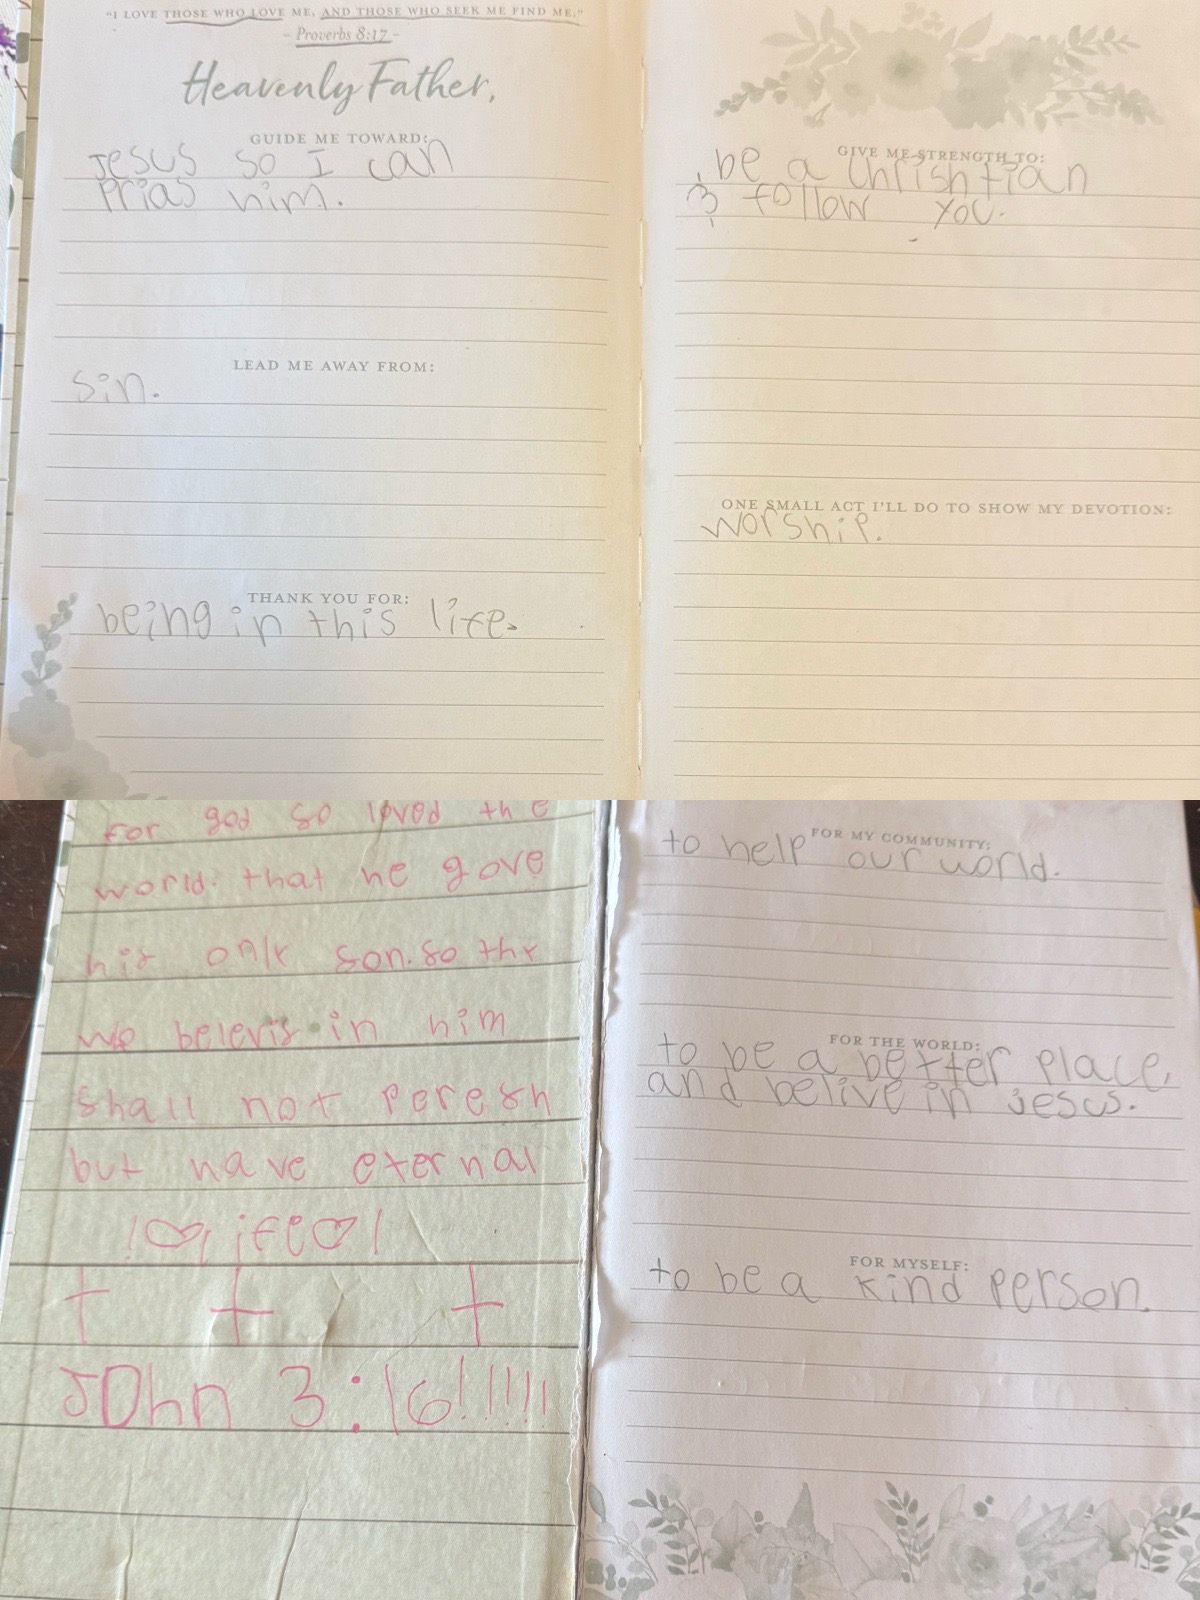 "I LOVE THOSE WHO LOVE ME, AND THOSE WHO SEEK ME FIND ME."
- Proverbs 8:17 -
Heavenly Father,
GUIDE ME TOWARD:
Jesus so I can
Prias him.
LEAD ME AWAY FROM:
Sin.
THANK YOU FOR:
being in this life.
GIVE ME STRENGTH TO:
be a Chrishtian
& follow you.
ONE SMALL ACT I'LL DO TO SHOW MY DEVOTION:
Worship.
For god so loved the
world. that he gove
his only son. so thy
belevis in him
shall not peresh
but have eternal
life
John 3:16!!!!!
FOR MY COMMUNITY:
to help our world.
FOR THE WORLD:
to be a better place
and belive in Jesus.
FOR MYSELF:
to be a kind person.